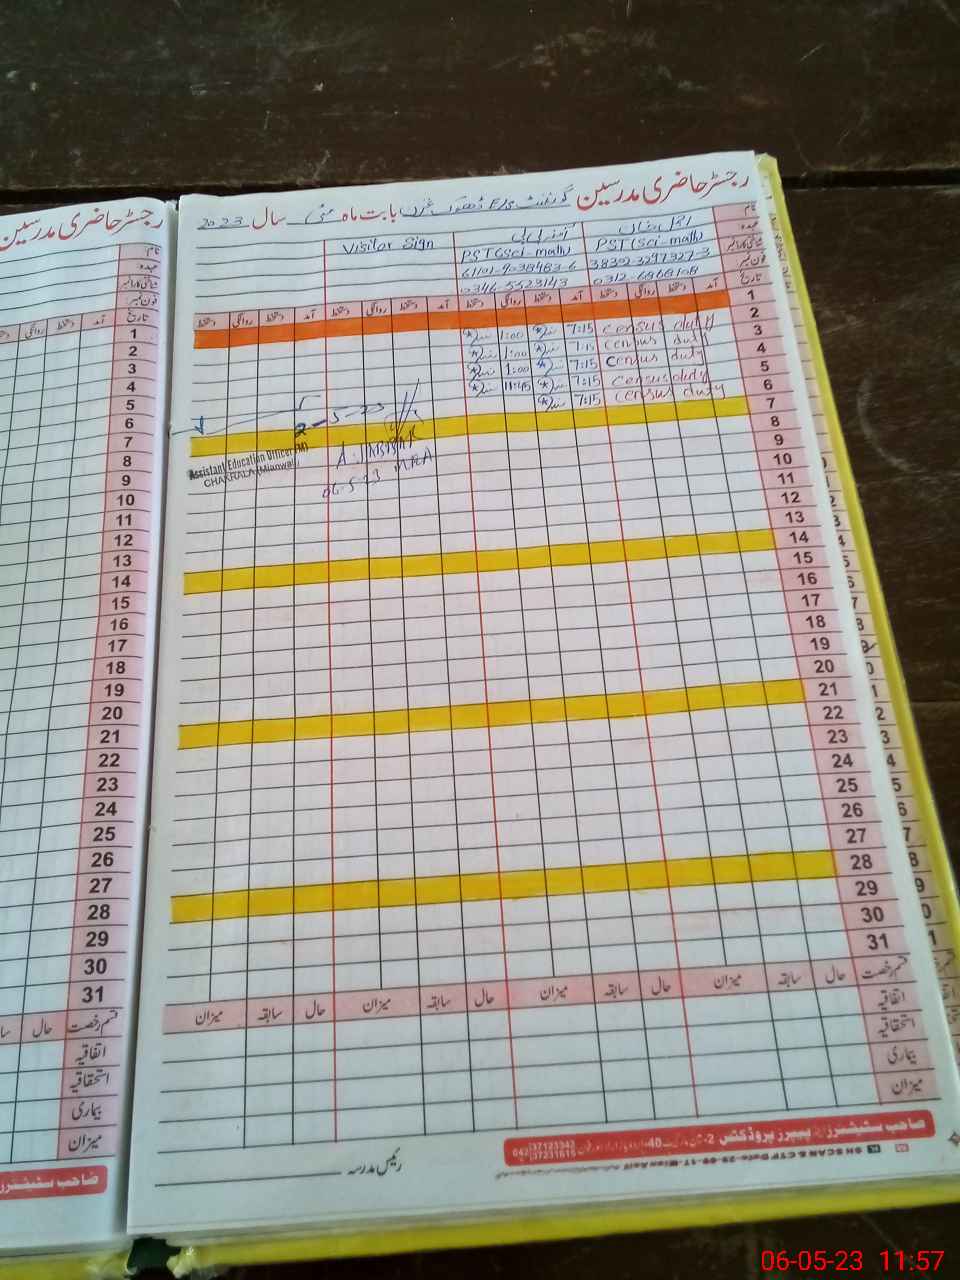 رجسٹر حاضری مدرسین گورنمنٹ E/S ڈھوک غزن بابت ماہ مئی سال 2023
نام
Visitor Sign
عہدہ
PST (Sci-math) PST (Sci-math)
شناختی کارڈ نمبر
61101-9038483-6 38302-3297327-3
فون نمبر
0346-5523143 0312-6868108
تاریخ آمد دستخط روانگی دستخط آمد دستخط روانگی دستخط آمد دستخط روانگی دستخط آمد دستخط روانگی دستخط
1
2 census duty 7:15 1:00
3 census duty 7:15 1:00
4 census duty 7:15 1:00
5 census duty 7:15 11:45
6 census duty 7:15
7
2-5-23
Assistant Education Officer (M)
CHAKRALA (Mianwali)
06-5-23 MEA
8
9
10
11
12
13
14
15
16
17
18
19
20
21
22
23
24
25
26
27
28
29
30
31
قسم رخصت حال سابقہ میزان حال سابقہ میزان حال سابقہ میزان حال سابقہ میزان
اتفاقیہ
استحقاقیہ
بیماری
میزان
صاحب سٹیشنرز اینڈ پیپرز پروڈکٹس
042 37123342
37231615
رئیس مدرسہ
رجسٹر حاضری مدرسین
نام
عہدہ
شناختی کارڈ نمبر
فون نمبر
تاریخ آمد دستخط روانگی دستخط
1
2
3
4
5
6
7
8
9
10
11
12
13
14
15
16
17
18
19
20
21
22
23
24
25
26
27
28
29
30
31
قسم رخصت حال
اتفاقیہ
استحقاقیہ
بیماری
میزان
صاحب سٹیشنرز
06-05-23 11:57